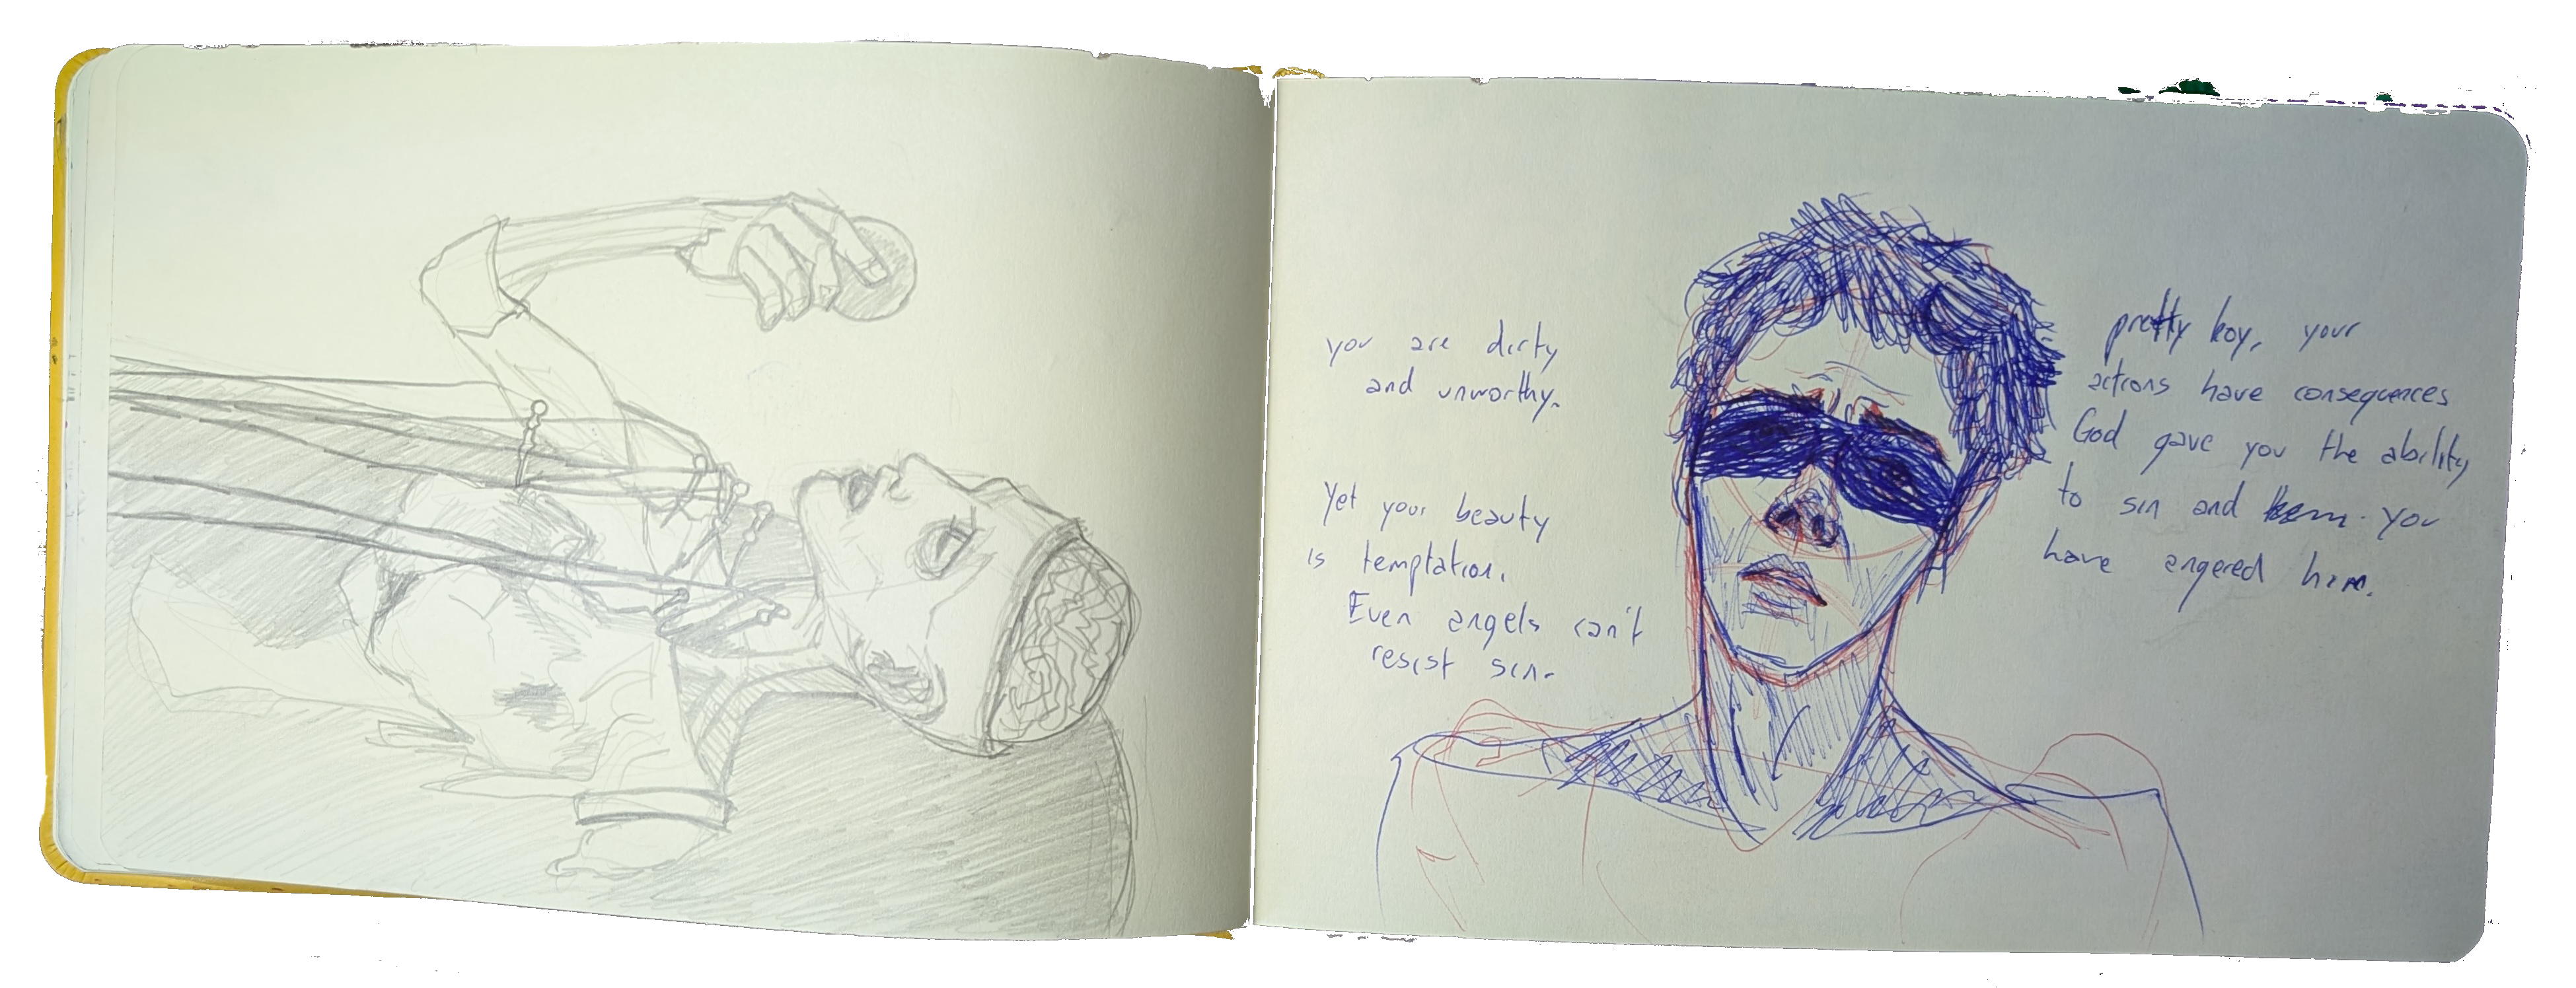 you are dirty
and unworthy.
Yet your beauty
is temptation.
Even angels can't
resist sin.
pretty boy, your
actions have consequences
God gave you the ability
to sin and you
have angered him.